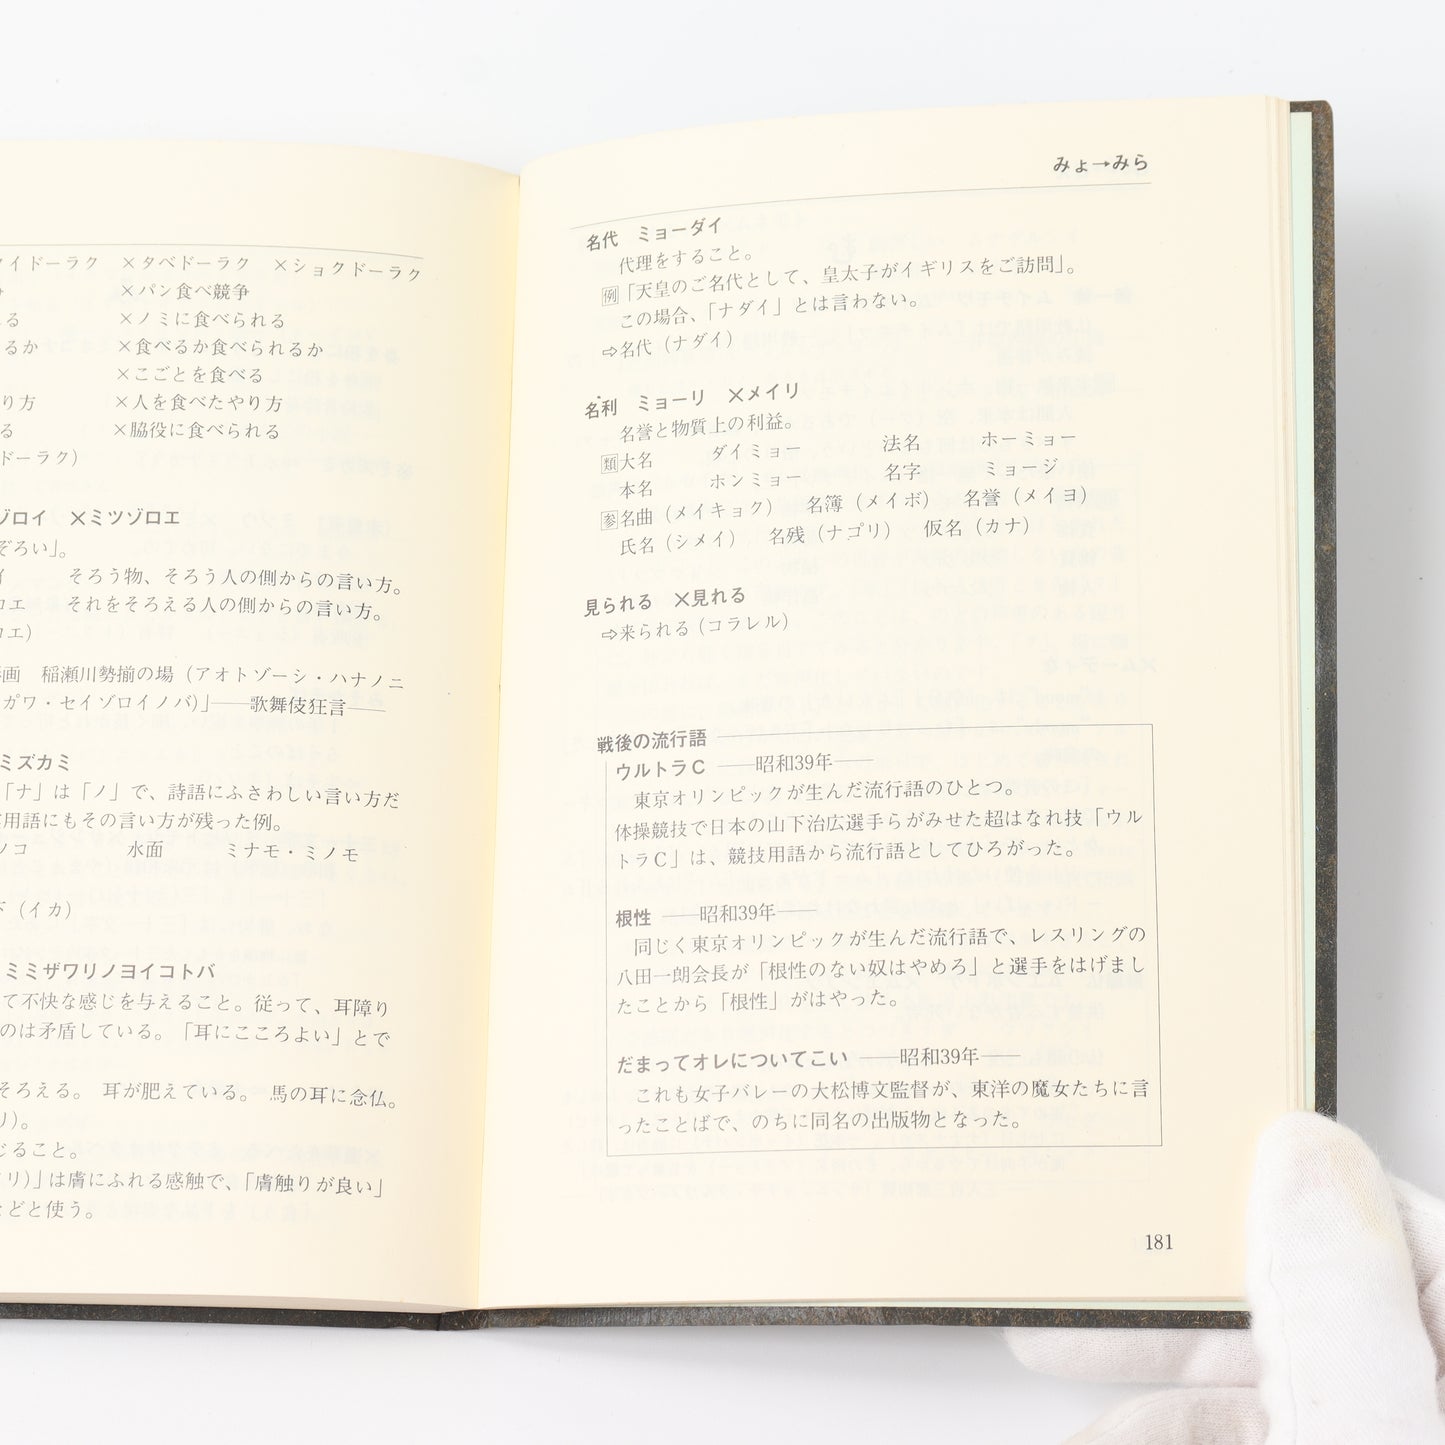 イドーラク　×タベドーラク　×ショクドーラク
×パン食べ競争
る　×ノミに食べられる
るか　×食べるか食べられるか
×こごとを食べる
り方　×人を食べたやり方
る　×脇役に食べられる
ドーラク）
ゾロイ　×ミツゾロエ
ぞろい」。
イ　そろう物、そろう人の側からの言い方。
ロエ　それをそろえる人の側からの言い方。
ロエ）
画　稲瀬川勢揃の場（アオトゾーシ・ハナノニ
ガワ・セイゾロイノバ）」――歌舞伎狂言――
ミズカミ
「ナ」は「ノ」で、詩語にふさわしい言い方だ
用語にもその言い方が残った例。
ソコ　水面　ミナモ・ミノモ
下（イカ）
ミミザワリノヨイコトバ
て不快な感じを与えること。従って、耳障り
のは矛盾している。「耳にこころよい」とで
そろえる。　耳が肥えている。　馬の耳に念仏。
リ）。
じること。
リ）」は膚にふれる感触で、「膚触りが良い」
などと使う。
みょ→みら
名代　ミョーダイ
代理をすること。
例「天皇のご名代として、皇太子がイギリスをご訪問」。
この場合、「ナダイ」とは言わない。
⇨名代（ナダイ）
名利　ミョーリ　×メイリ
名誉と物質上の利益。
類大名　ダイミョー　法名　ホーミョー
本名　ホンミョー　名字　ミョージ
参名曲（メイキョク）　名簿（メイボ）　名誉（メイヨ）
氏名（シメイ）　名残（ナゴリ）　仮名（カナ）
見られる　×見れる
⇨来られる（コラレル）
戦後の流行語
ウルトラC　――昭和39年――
東京オリンピックが生んだ流行語のひとつ。
体操競技で日本の山下治広選手らがみせた超はなれ技「ウル
トラC」は、競技用語から流行語としてひろがった。
根性　――昭和39年――
同じく東京オリンピックが生んだ流行語で、レスリングの
八田一朗会長が「根性のない奴はやめろ」と選手をはげまし
たことから「根性」がはやった。
だまってオレについてこい　――昭和39年――
これも女子バレーの大松博文監督が、東洋の魔女たちに言
ったことばで、のちに同名の出版物となった。
181